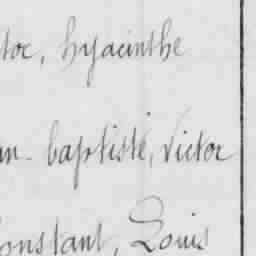 tor, hyacinthe
an-baptiste, Victor
Constant, Louis